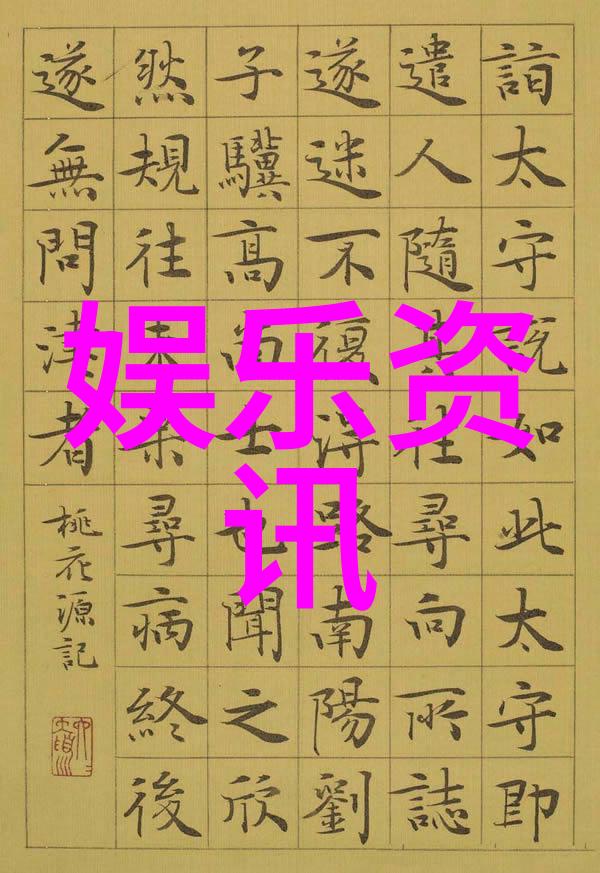 詣太守説如此太守即
遣人隨其往尋向所誌
遂迷不復得路南陽劉
子驥高尚士也聞之欣
然規往未果尋病終後
遂無問津者
桃花源記
娱乐资
讯